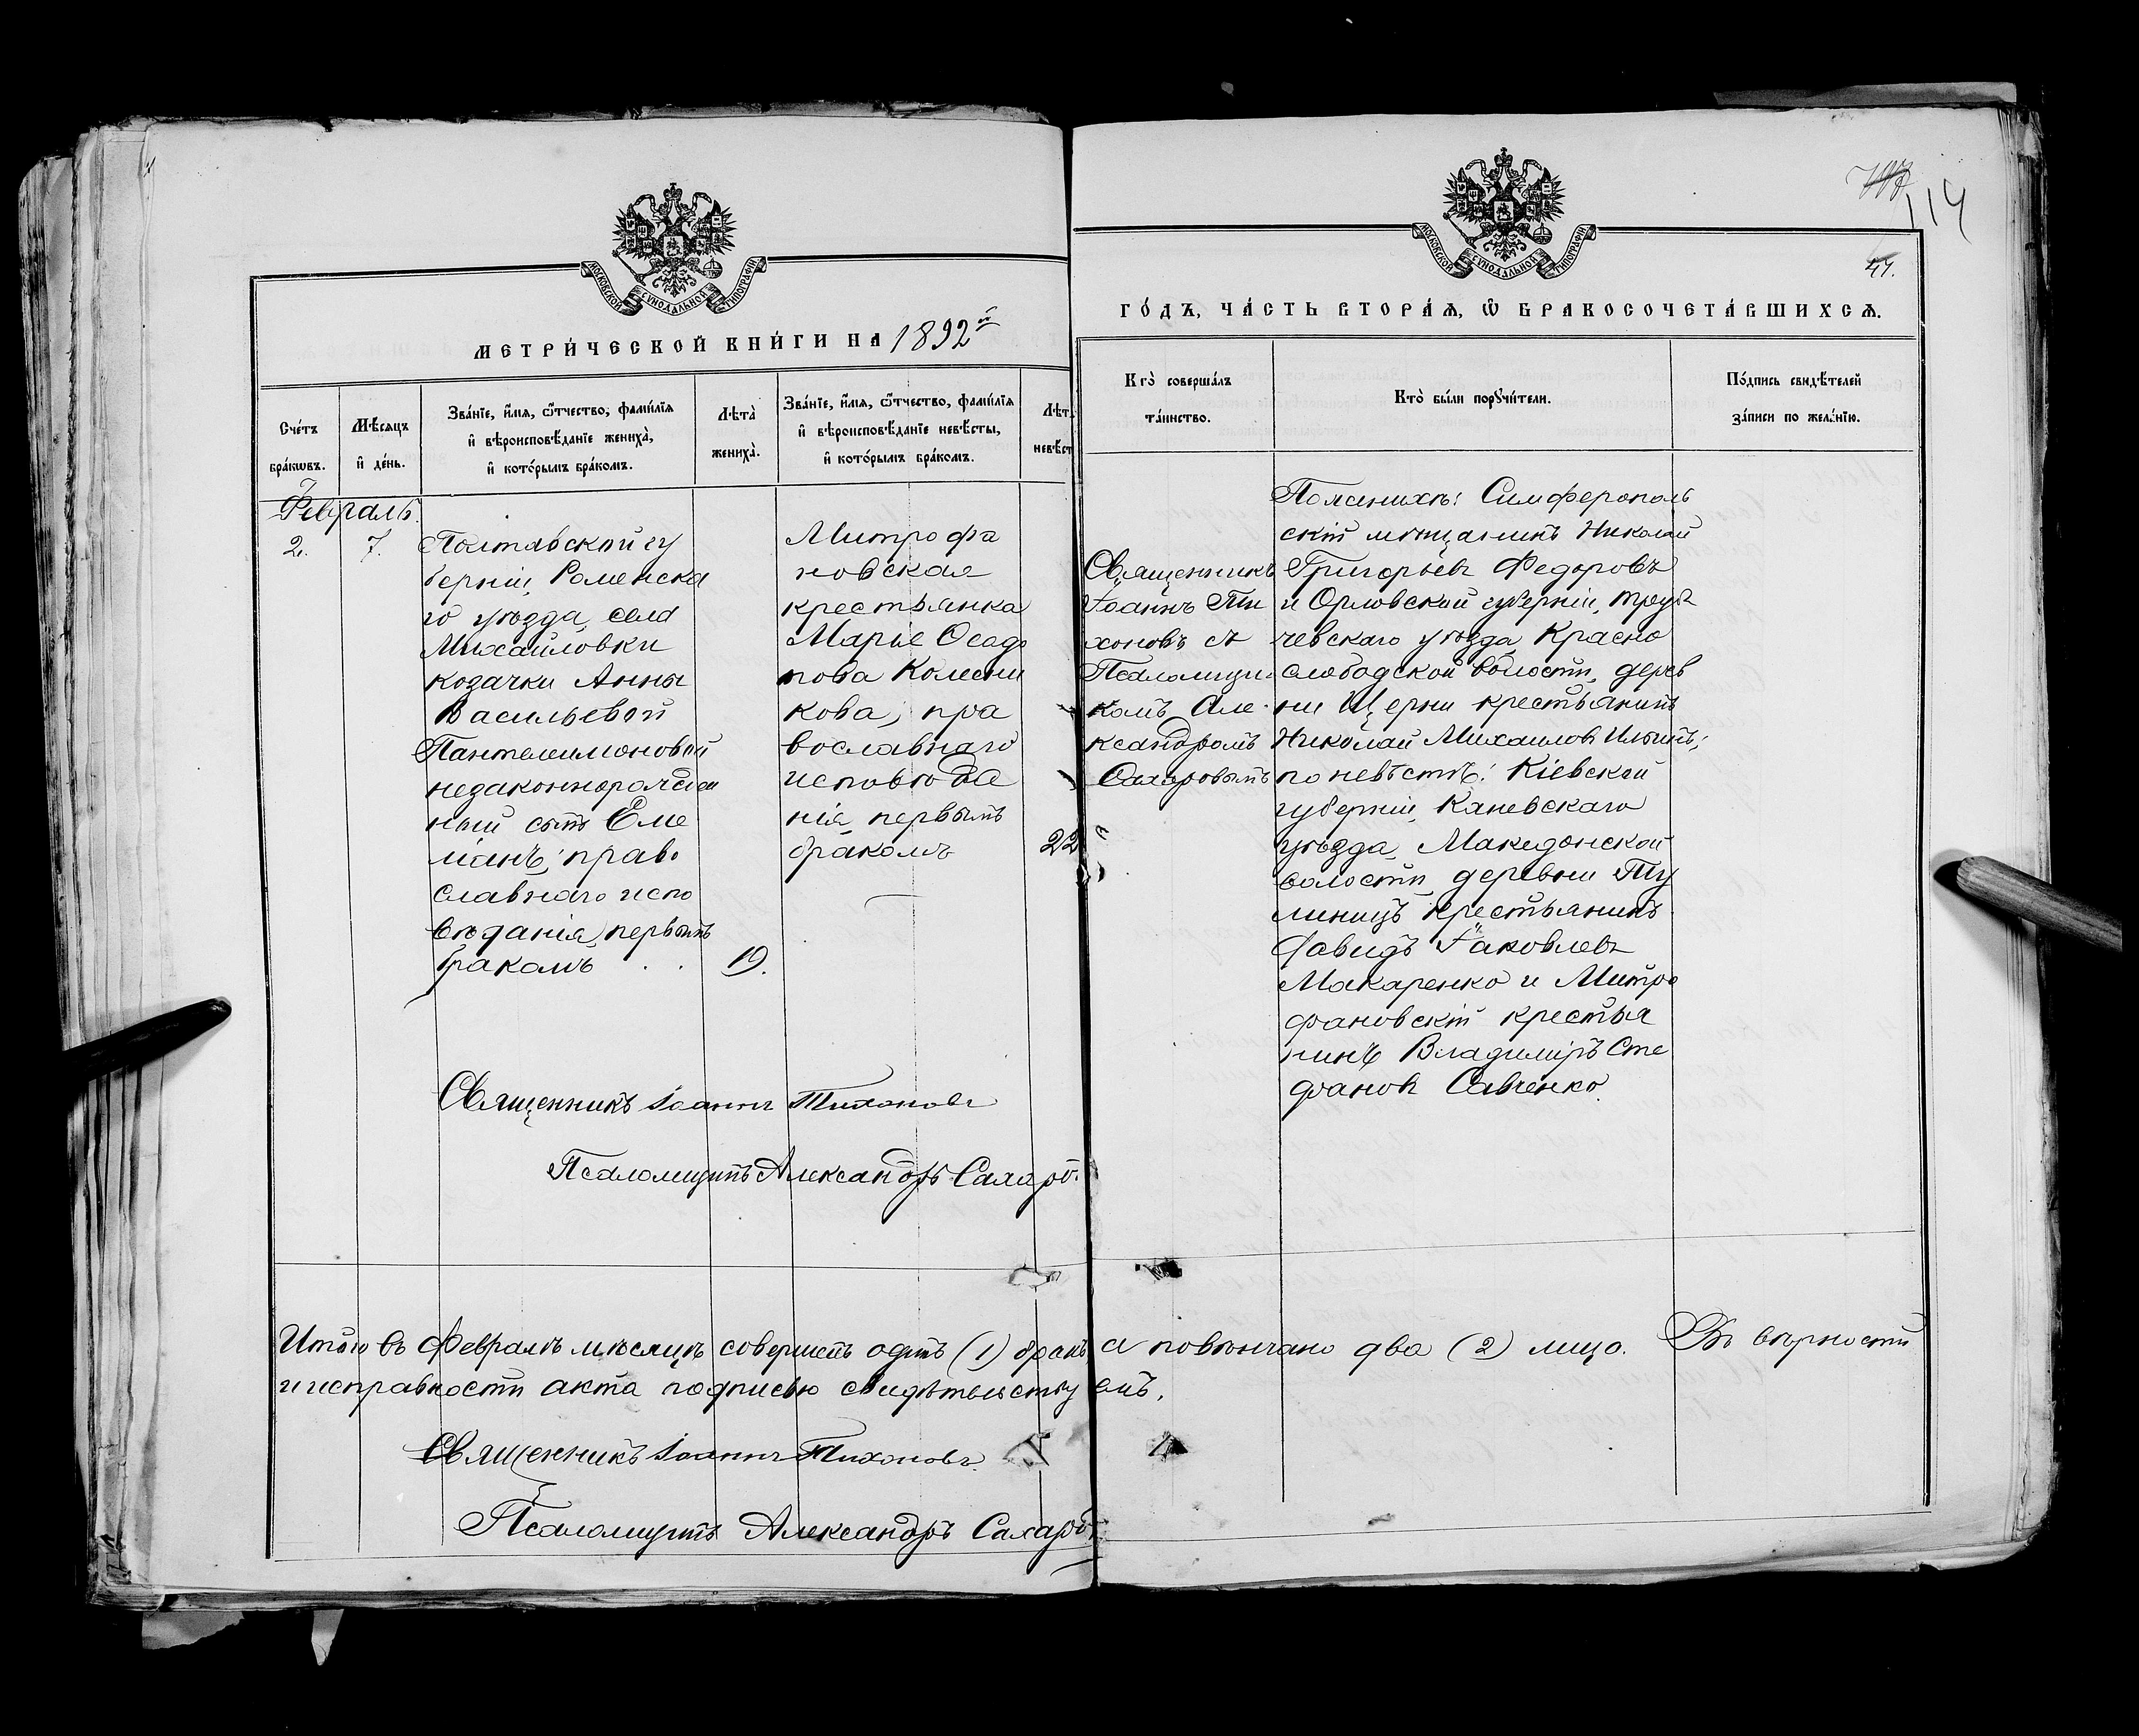 МОСКОВСКОЙ СѴНОДАЛЬНОЙ ТИПОГРАФІИ
МЕТРИ́ЧЕСКОЙ КНИ́ГИ НА 1892й
Сче́тъ бра́кѡвъ.
Мѣ́сяцъ и҆ де́нь.
Зва́нїе, и҆́мѧ, ѻ҆́тчество, фами́лїѧ
и҆ вѣроисповѣ́данїе жениха̀,
и҆ кото́рымъ бра́комъ.
Лѣта̀ жениха̀.
Зва́нїе, и҆́мѧ, ѻ҆́тчество, фами́лїѧ
и҆ вѣроисповѣ́данїе невѣ́сты,
и҆ кото́рымъ бра́комъ.
Лѣт
невѣст
Февраль.
2. 7.
Полтавской гу
берніи, Роменска
го уѣзда, села
Михайловки
козачки Анны
Васильевой
Пантелеимоновой
незаконнорожден
ный сынъ Еме
ліанъ, право
славнаго испо
вѣданія, первымъ
бракомъ . . 19.
Митрофа
новская
крестьянка
Марѳе Осадо
пова Колесни
кова, пра
вославнаго
исповѣда
нія, первымъ
бракомъ 22
Священникъ Іоаннъ Тихоновъ
Псаломщикъ Александръ Сахаров
МОСКОВСКОЙ СѴНОДАЛЬНОЙ ТИПОГРАФІИ
114
47.
ГО́ДЪ, ЧА́СТЬ ВТОРА́Ѧ, Ѡ҆ БРАКОСОЧЕТА́ВШИХСѦ.
Кто̀ соверша́лъ
та́инство.
Кто̀ бы́ли порꙋчи́тели.
По́дпись свидѣ́телей
за́писи по жела́нїю.
Священникъ
Іоаннъ Ти
хоновъ съ
Псаломщи
комъ Але
ксандромъ
Сахаровымъ
По женихѣ: Симферополь
скій мѣщанинъ Николай
Григорьевъ Федоровъ
и Орловской губерніи, Труб
чевскаго уѣзда, Красно
слободской волости, дерев
ни Щерни крестьянинъ
Николай Михаиловъ Ильинъ;
по невѣстѣ: Кіевской
губерніи, Каневскаго
уѣзда, Македонской
волости, деревни Ту
линицъ крестьянинъ
Давидъ Іаковлевъ
Макаренко и Митро
фановскій крестья
нинъ Владиміръ Сте
фановъ Савченко.
Итого въ Февралѣ мѣсяцѣ совершенъ одинъ (1) бракъ, а повѣнчано два (2) лица. Въ вѣрности
и исправности акта подписью свидѣтельствуемъ.
Священникъ Іоаннъ Тихоновъ.
Псаломщикъ Александръ Сахаров